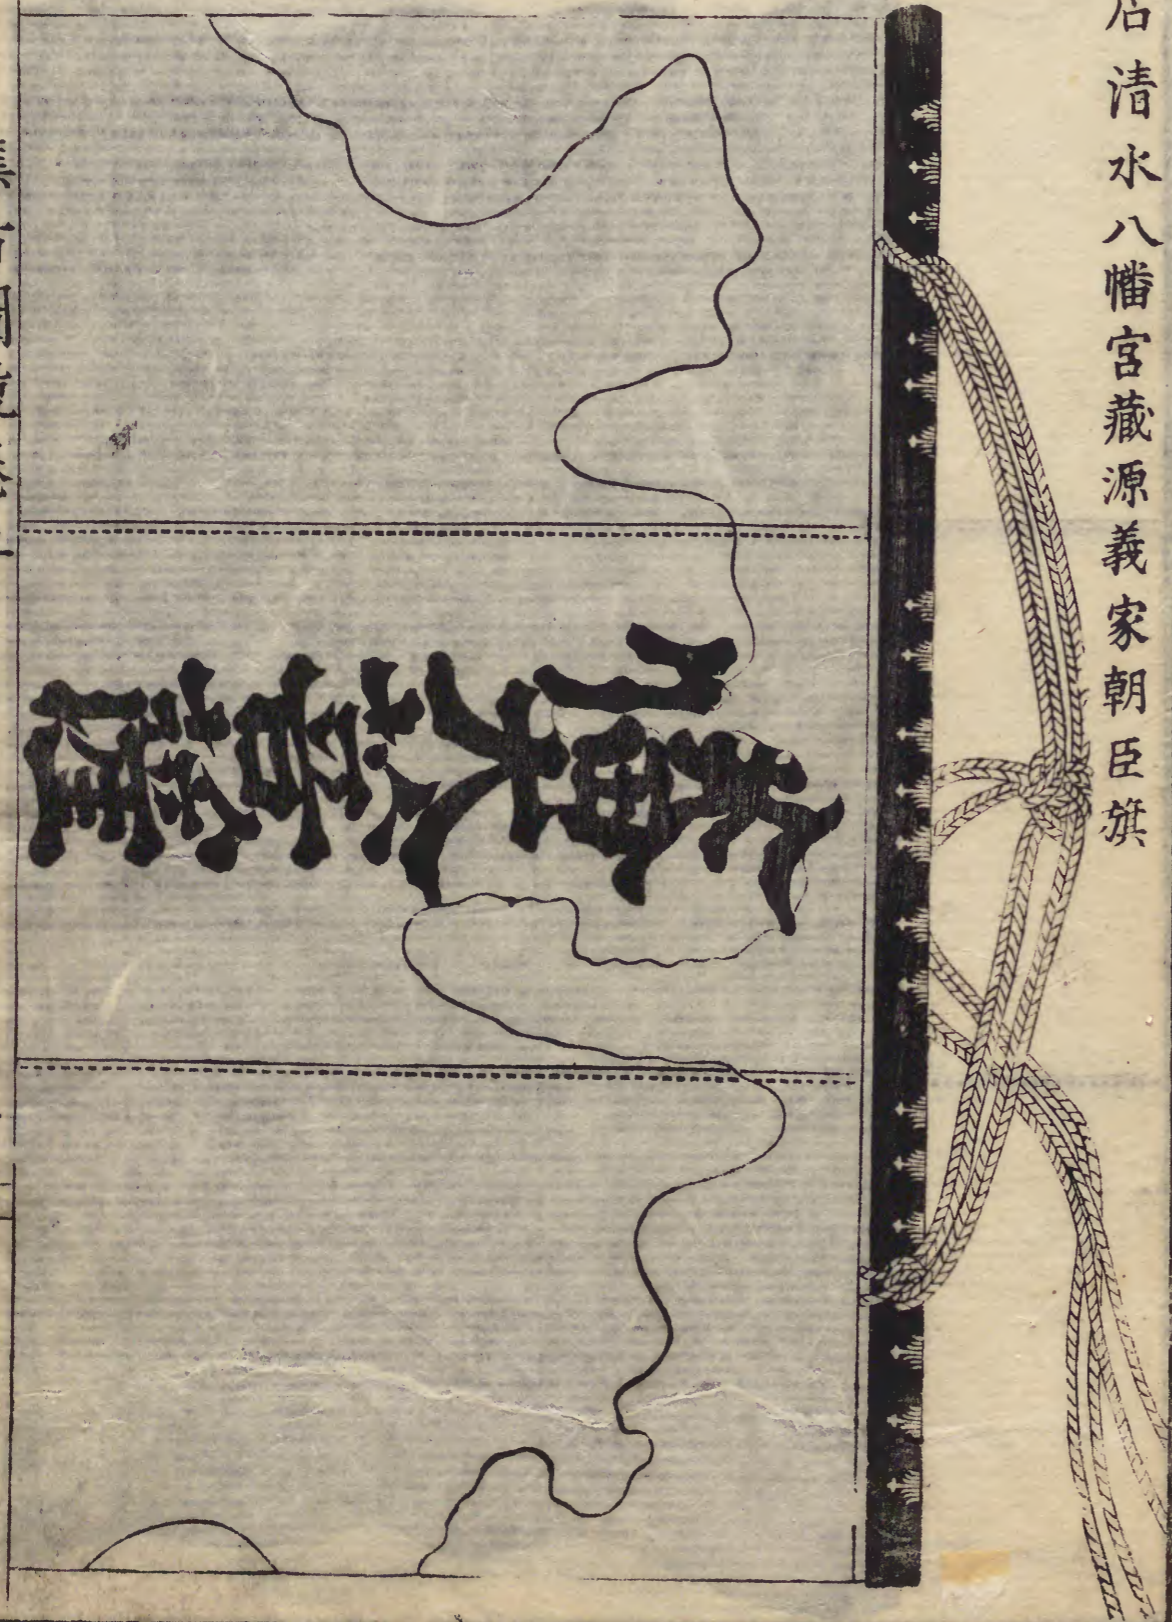 石清水八幡宮藏源義家朝臣旗
幡大菩薩